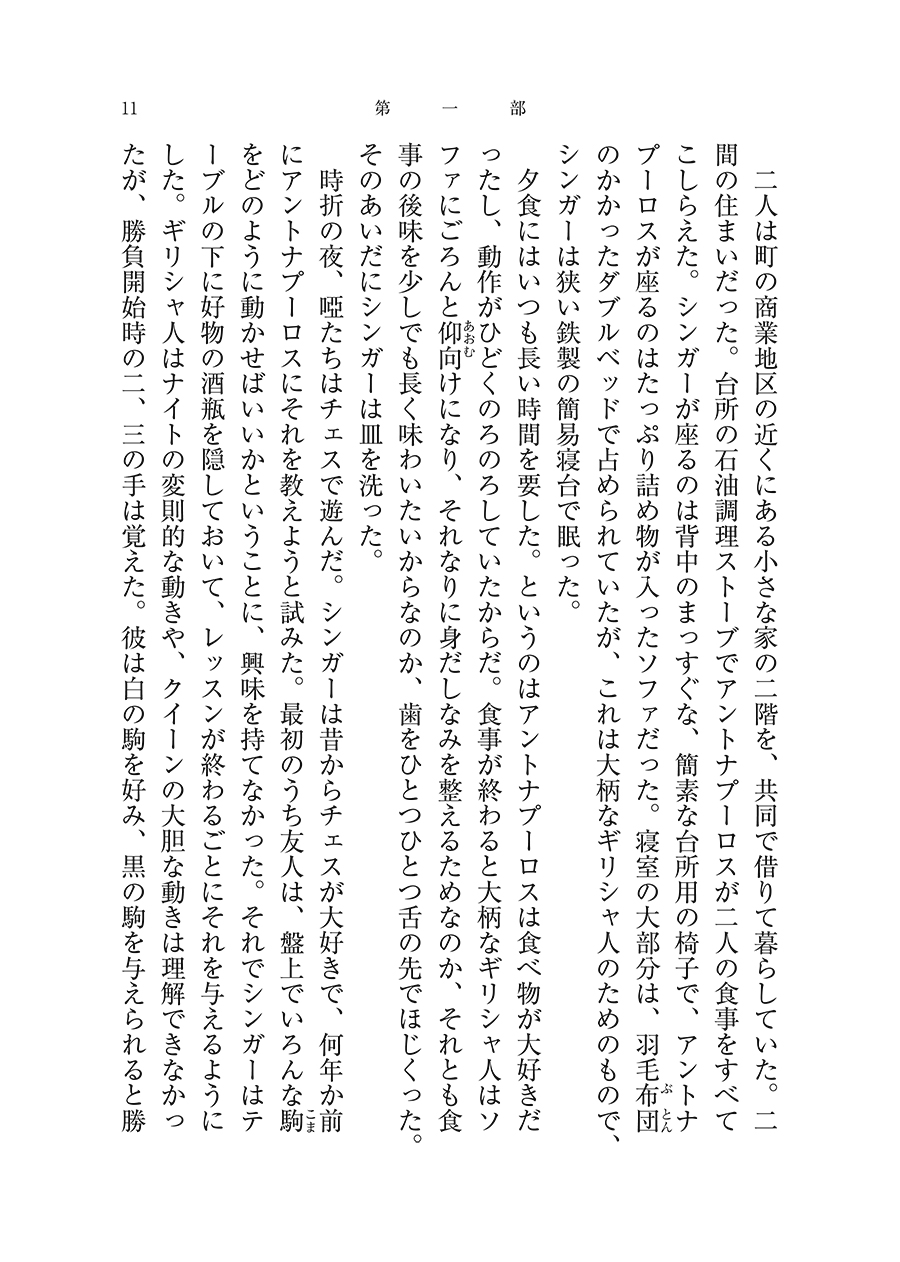 11
第一部
二人は町の商業地区の近くにある小さな家の二階を、共同で借りて暮らしていた。二
間の住まいだった。台所の石油調理ストーブでアントナプーロスが二人の食事をすべて
こしらえた。シンガーが座るのは背中のまっすぐな、簡素な台所用の椅子で、アントナ
プーロスが座るのはたっぷり詰め物が入ったソファだった。寝室の大部分は、羽毛布団
ぶとん
のかかったダブルベッドで占められていたが、これは大柄なギリシャ人のためのもので、
シンガーは狭い鉄製の簡易寝台で眠った。
夕食にはいつも長い時間を要した。というのはアントナプーロスは食べ物が大好きだ
ったし、動作がひどくのろのろしていたからだ。食事が終わると大柄なギリシャ人はソ
ファにごろんと仰向けになり、それなりに身だしなみを整えるためなのか、それとも食
あおむ
事の後味を少しでも長く味わいたいからなのか、歯をひとつひとつ舌の先でほじくった。
そのあいだにシンガーは皿を洗った。
時折の夜、啞たちはチェスで遊んだ。シンガーは昔からチェスが大好きで、何年か前
にアントナプーロスにそれを教えようと試みた。最初のうち友人は、盤上でいろんな駒
こま
をどのように動かせばいいかということに、興味を持てなかった。それでシンガーはテ
ーブルの下に好物の酒瓶を隠しておいて、レッスンが終わるごとにそれを与えるように
した。ギリシャ人はナイトの変則的な動きや、クイーンの大胆な動きは理解できなかっ
たが、勝負開始時の二、三の手は覚えた。彼は白の駒を好み、黒の駒を与えられると勝